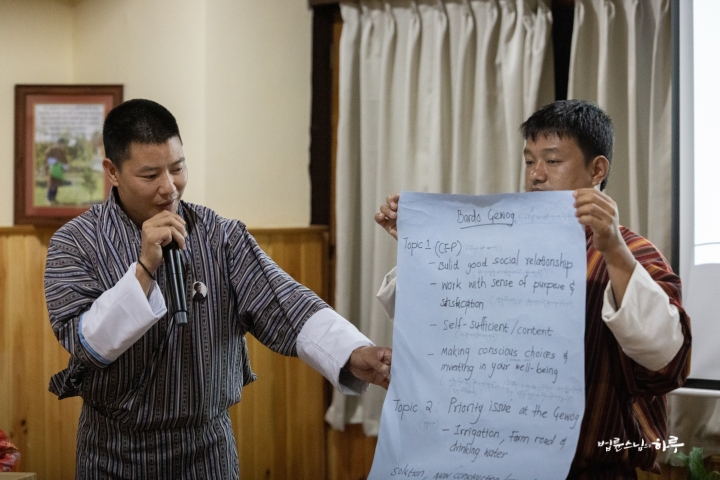 Bardo Gewog
Topic 1 (CEP)
- Bulid good social relationship
- work with sense of purpose &
satisfication
- Self-sufficient/content
- Making conscious choices &
investing in your well-being
Topic 2 Priority issue at the Gewog
- Irrigation, Farm road &
drinking water
solution, New construction
법륜스님의하루